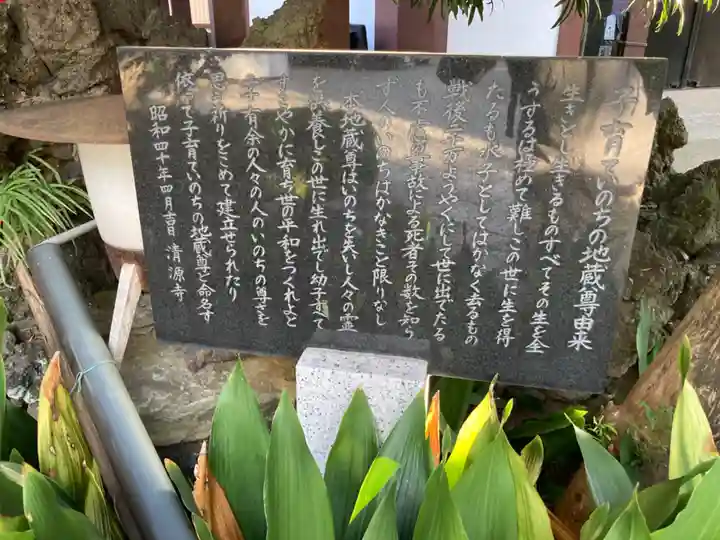 子育ていのちの地蔵尊由来
生きとし生きるものすべてその生を全
うするは極めて難しこの世に生を得
たるも水子としてはかなく去るもの
戦後二千万ようやくにして世に出でたる
も不慮の事故による死者その数を知ら
ず人々のいのちはかなきこと限りなし
本地蔵尊はいのちを失いし人々の霊
を供養しこの世に生れ出でし幼子すべて
すこやかに育ち世の平和をつくれよと
千有余の人々の人のいのちの尊さを
思う祈りをこめて建立せられたり
依って子育ていのちの地蔵尊と命名す
昭和四十年四月吉日 清源寺